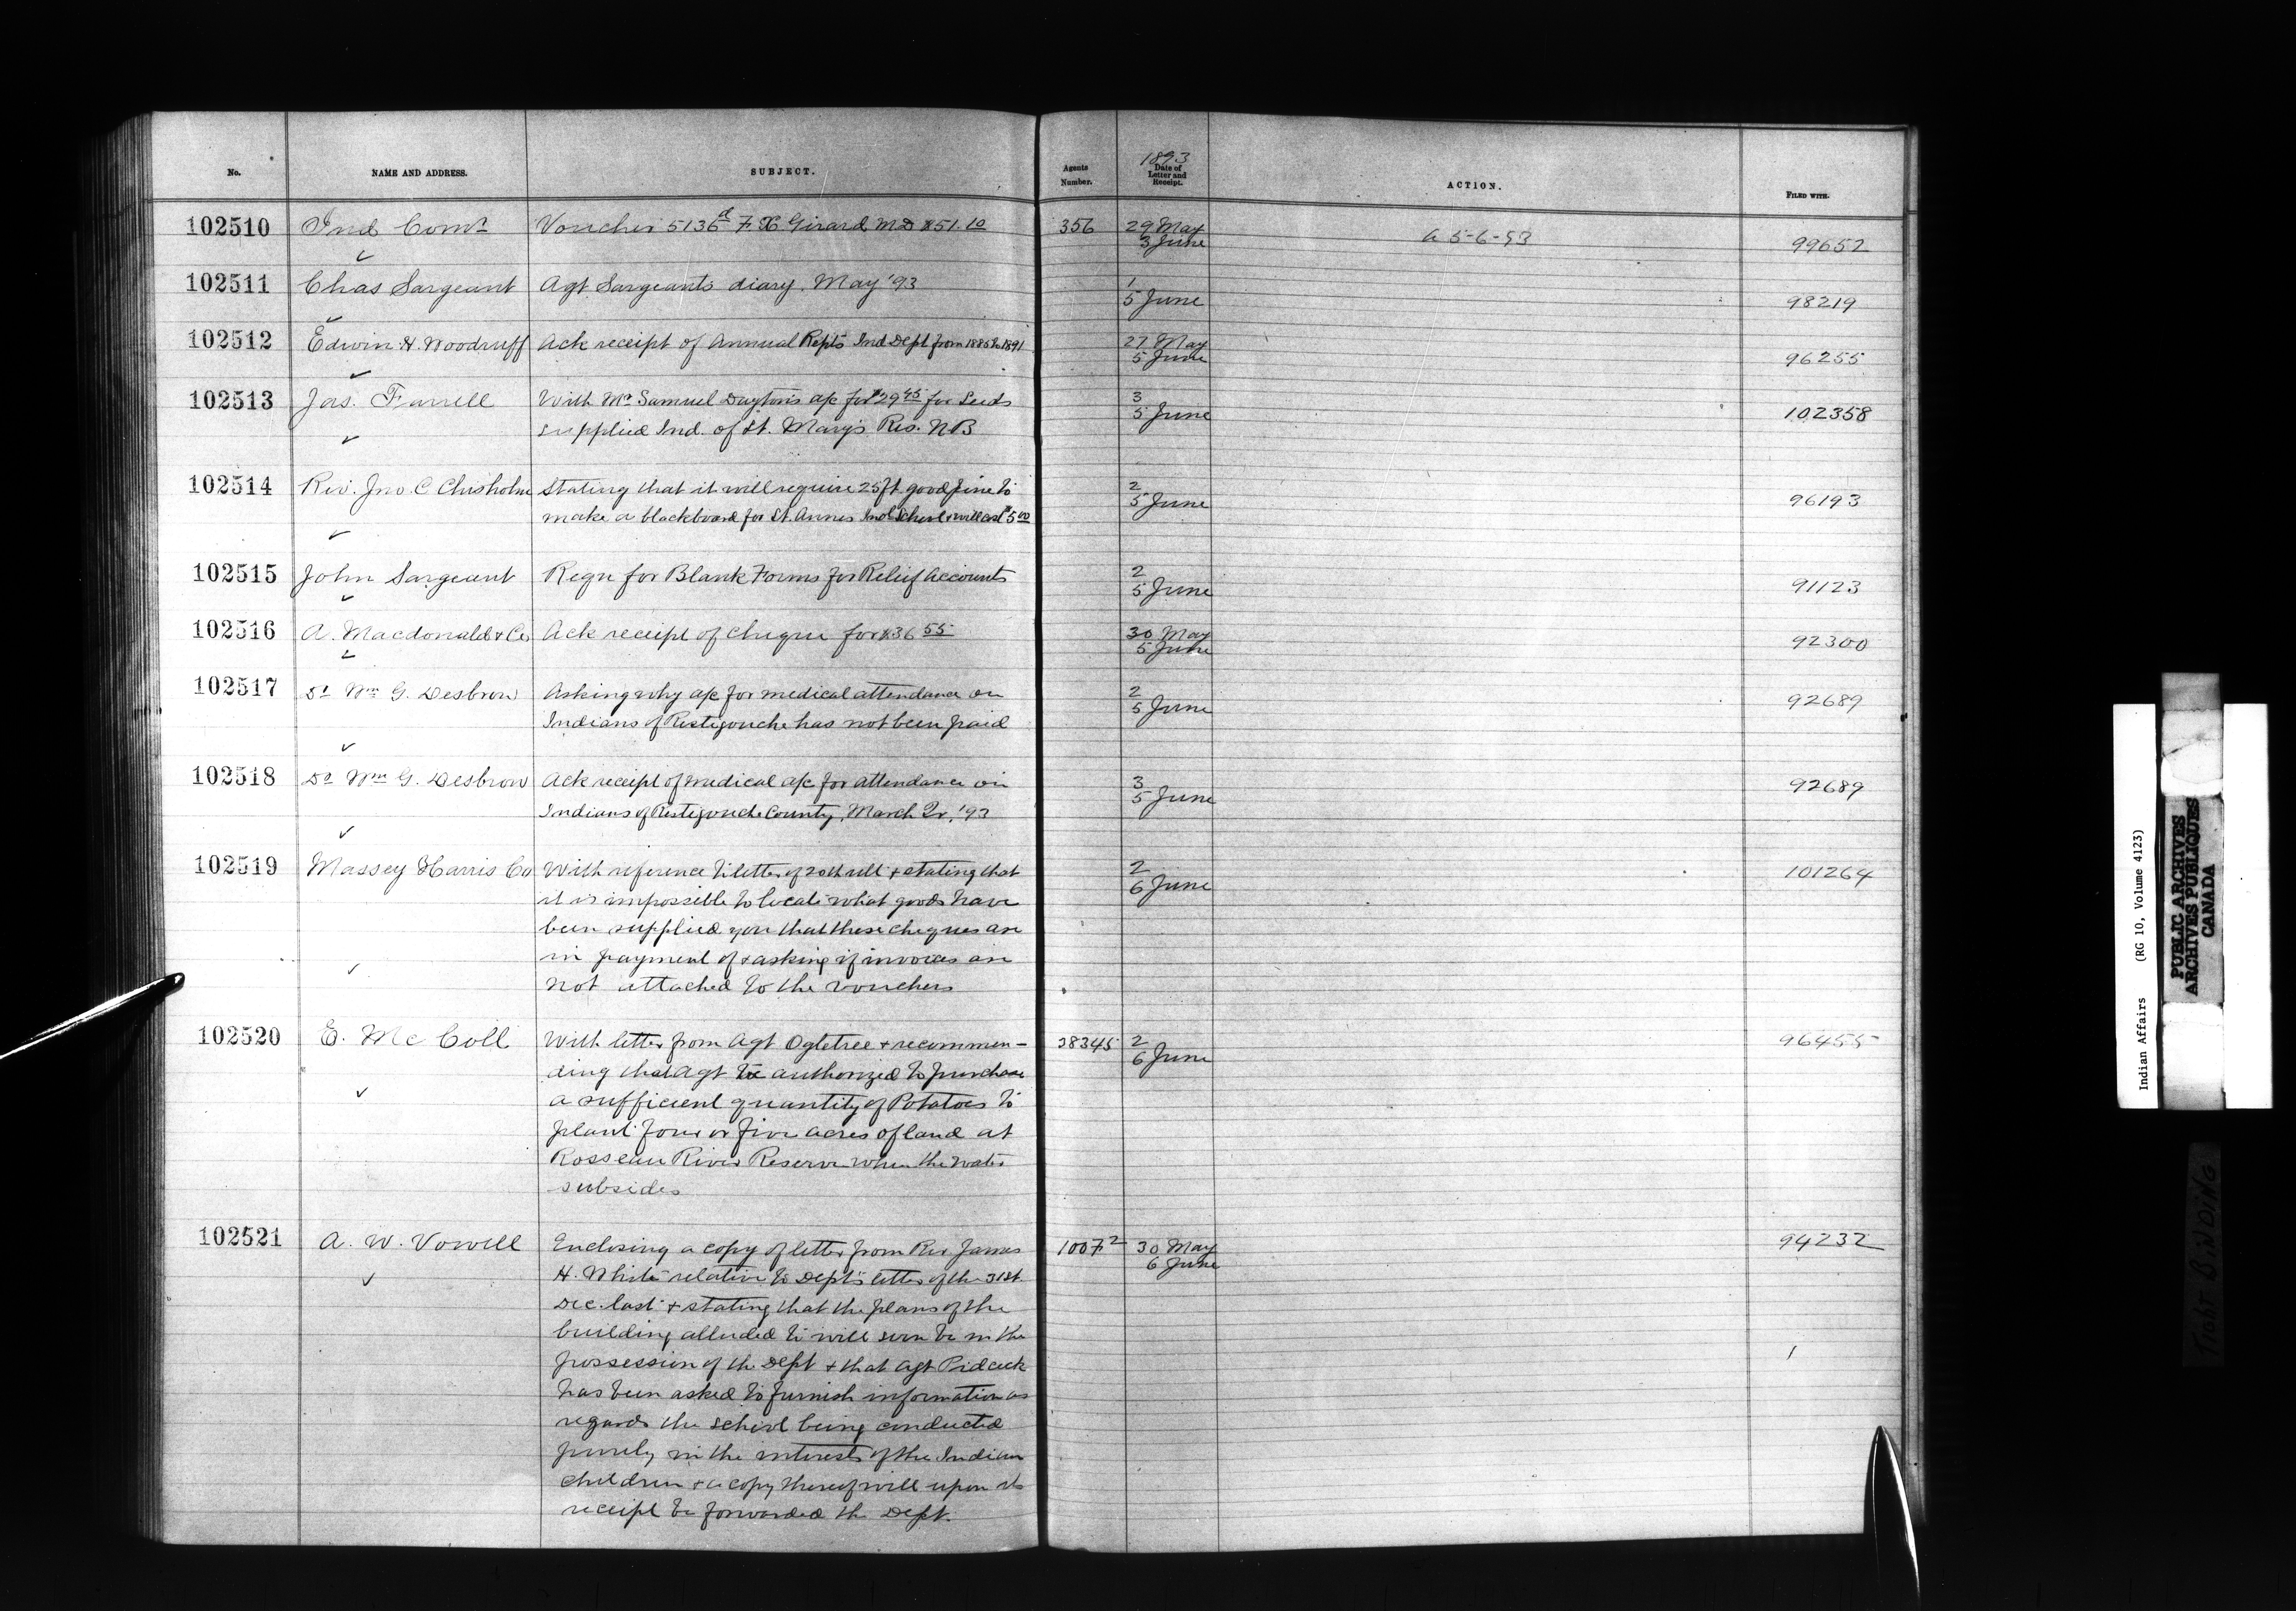 No. NAME AND ADDRESS. SUBJECT. Agents Number. 1893 Date of Letter and Receipt. ACTION. FILED WITH.
102510 Ind Comr Voucher 5136d F. X Girard MD $51.10 356 29 May 3 June a 5-6-93 99652
102511 Chas Sargeant Agt Sargeants diary. May '93 1 5 June 98219
102512 Edwin H. Woodruff Ack receipt of Annual Repts Ind Dept from 1885 to 1891 27 May 5 June 96255
102513 Jas. Farrell With Mr Samuel Daytons a/c for $29 45 for Seeds 3 5 June 102358
supplied Ind. of St. Mary's Res. N B
102514 Rev. Jno. C Chisholm Stating that it will require 25 ft. good pine to 2 5 June 96193
make a blackboard for St. Annes Ind School & will cost $5 00
102515 John Sargeant Reqn for Blank Forms for Relief Accounts 2 5 June 91123
102516 A. Macdonald & Co Ack receipt of cheque for $36 55 30 May 5 June 92300
102517 Dr Wm G. Desbrow Asking why a/c for medical attendance on 2 5 June 92689
Indians of Restigouche has not been paid
102518 Dr Wm G. Desbrow Ack receipt of medical a/c for attendance on 3 5 June 92689
Indians of Restigouche County, March Qr. '93
102519 Massey Harris Co With reference to letter of 20th ult & stating that 2 6 June 101264
it is impossible to locate what goods have
been supplied you that these cheques are
in payment of & asking if invoices are
not attached to the vouchers
102520 E. Mc Coll With letter from Agt Ogletree & recommen- 38345 2 6 June 96455
ding that Agt be authorized to purchase
a sufficient quantity of Potatoes to
plant four or five acres of land at
Rosseau River Reserve when the water
subsides
102521 A. W. Vowell Enclosing a copy of letter from Rev James 1007 2 30 May 6 June 94232
H. White relative to Dept's letter of the 31st.
Dec. last & stating that the plans of the
building alluded to will soon be in the
possession of the Dept & that Agt Pidcock
has been asked to furnish information as
regards the school being conducted
purely in the interests of the Indian
children & a copy thereof will upon its
receipt be forwarded the Dept.
Indian Affairs (RG 10, Volume 4123)
PUBLIC ARCHIVES
ARCHIVES PUBLIQUES
CANADA
TIGHT BINDING